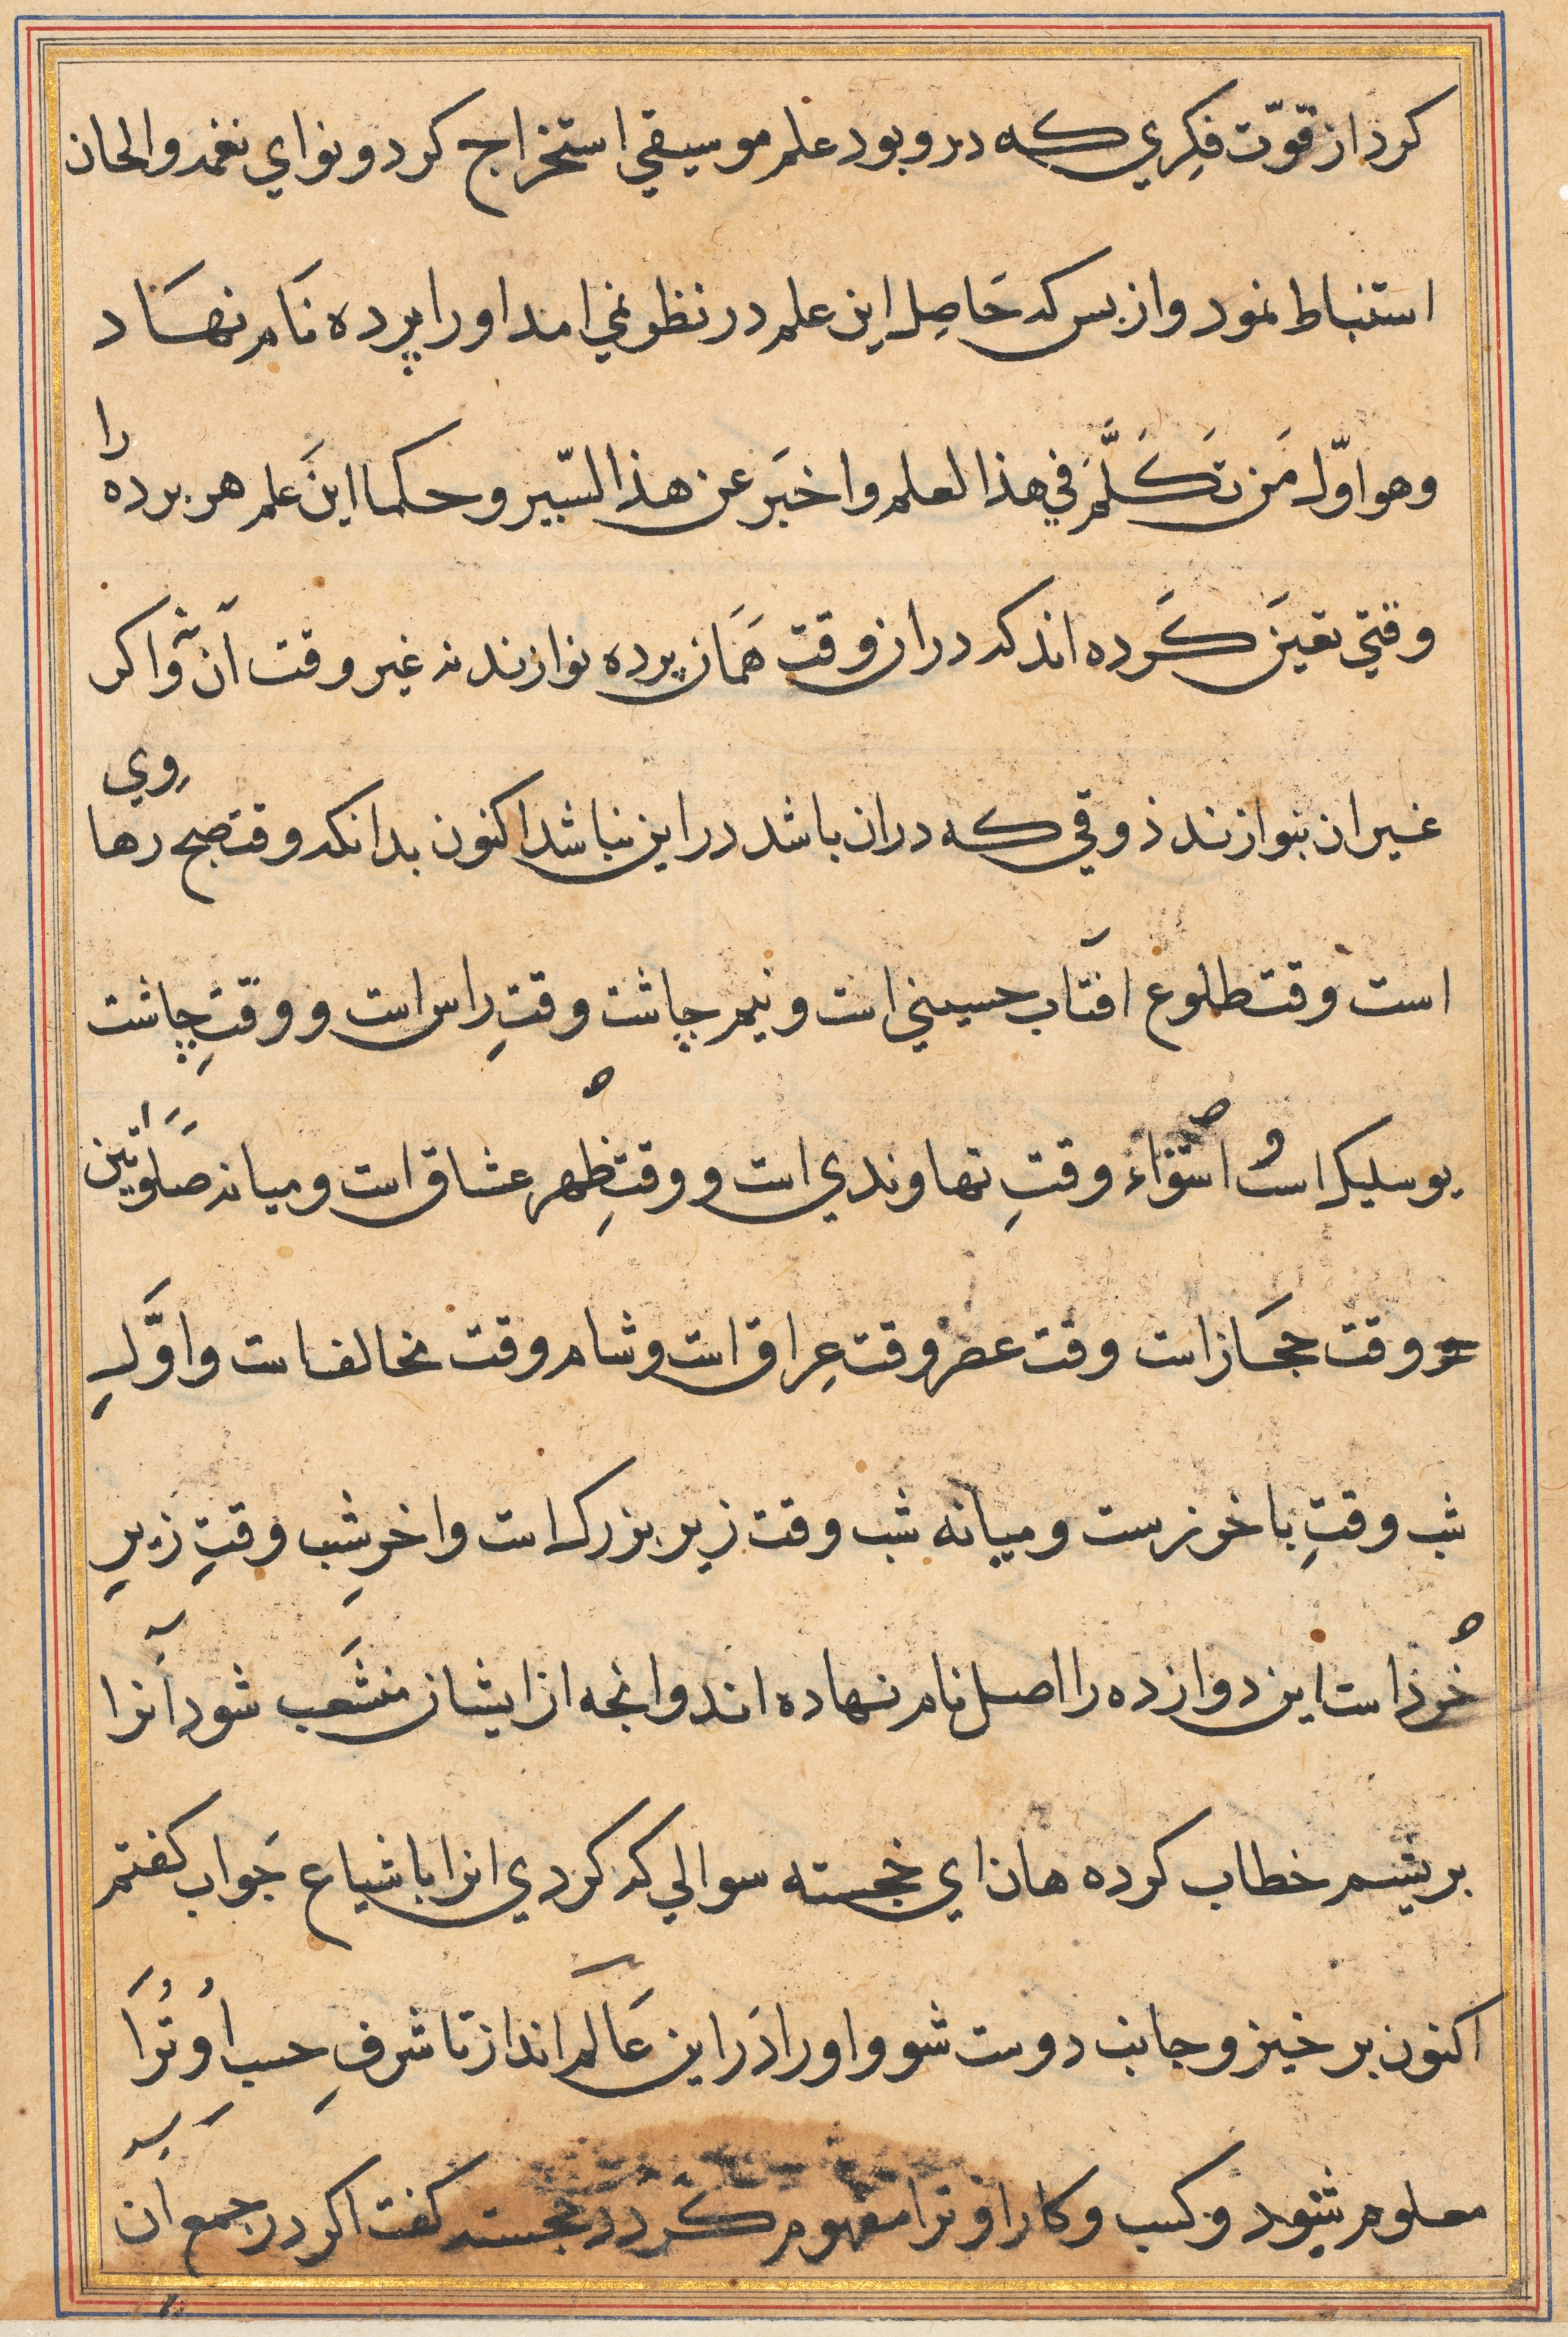 کرد از قوّت فکِري که درو بود علم موسيقي استخراج کرد و نواي نغمه والحان
استنباط نمود و از بس که حَاصِل اين علم در نظر نمي امد او را پرده نَام نهَاد
وهو اوّل مَن تَکَلَّمَ في هذا لعلم واخبَر عن هذا السّير و حکما اين علم هر برده را
وقتي تعين کَرده اند که در ان وقت هَمَان پرده نوازند نه غير وقت آن و اکر
غير ان بنوازند ذوقي که دران باشد در اين نباشد اکنون بدانکه وقت صبح رهاوي
است وقت طلوع افتاب حسيني است و نيم چاشت وقتِ راس است و وقتِ چاشت
بوسليک است استواء وقتِ نهاوندي است و وقتِ ظهر عشاق است و ميانه صَلوتين
وقت حجَاز است وقت عصر وقت عِراق است و شام وقت مخالف است و اوَّلِ
شب وقتِ باخرزست و ميانه شب وقت زير بزرک است و اخرِ شب وقتِ زيرِ
خُرد است اين دوازده را اصل نام نهاده اند و انجه از ايشان منشَعب شود آنرا
بريشم خطاب کرده هان اي خجسته سوالي که کردي انرا باشباع جَواب کفتم
اکنون برخيز و جانب دوست شو و او را دَر اين عَالَم انداز تا شرفِ حسب اُو تُرَا
معلوم شود و کسب و کار او ترا مفهوم کردد خجسته کفت اکر در جمع آن